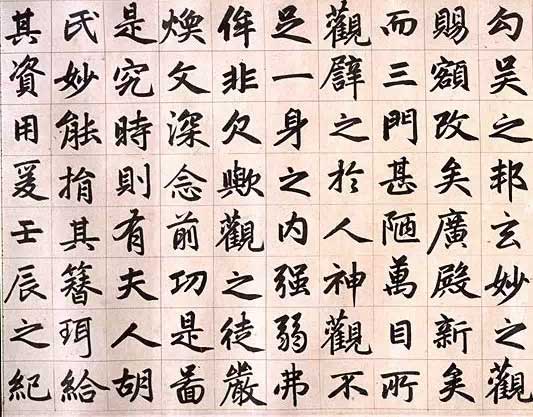 勾吳之邦玄妙之觀
賜額改矣廣殿新矣
而三門甚陋萬目所
觀譬之於人神觀不
足一身之内强弱弗
侔非欠歟觀之徒嚴
煥文深念前功是啚
是究時則有夫人胡
氏妙能捐其簪珥給
其資用爰壬辰之紀